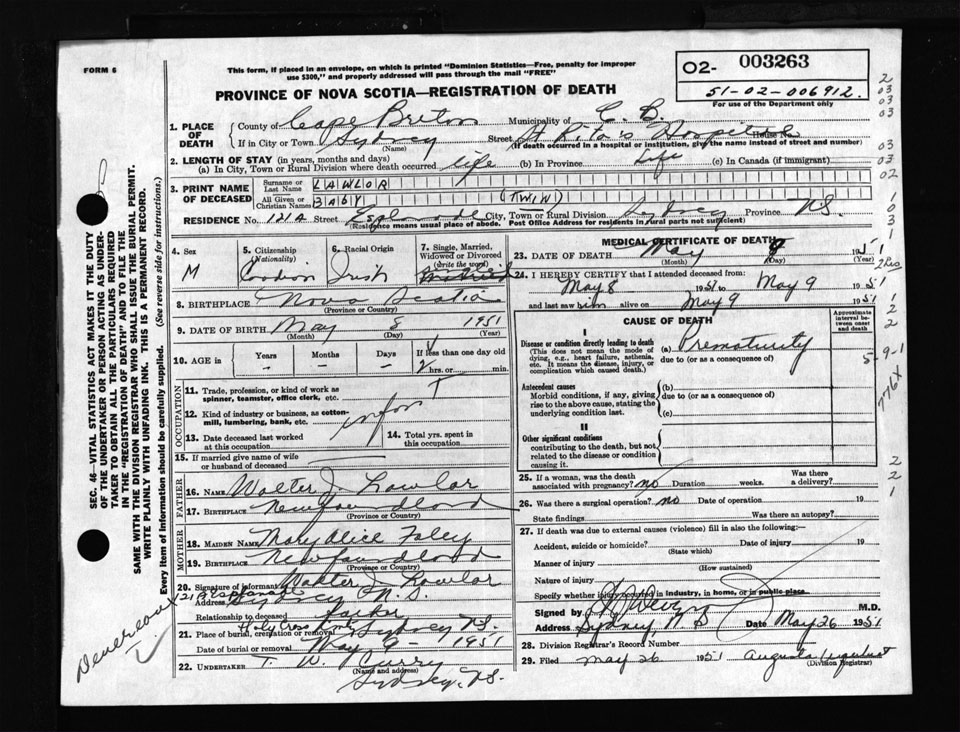 FORM 6
This form, if placed in an envelope, on which is printed "Dominion Statistics—Free, penalty for improper
use $300," and properly addressed will pass through the mail "FREE"
PROVINCE OF NOVA SCOTIA—REGISTRATION OF DEATH
02- 003263
51-02-006912.
For use of the Department only
1. PLACE OF DEATH
County of Cape Breton Municipality of C. B.
If in City or Town Sydney Street St Rita's Hospital House No.
(Name) (If death occurred in a hospital or institution, give the name instead of street and number)
2. LENGTH OF STAY (in years, months and days)
(a) In City, Town or Rural Division where death occurred life (b) In Province Life (c) In Canada (if immigrant)
3. PRINT NAME OF DECEASED
Surname or Last Name LAWLOR
All Given or Christian Names BABY (TWIN)
RESIDENCE No. 121A Street Esplanade City, Town or Rural Division Sydney Province N.S.
(Residence means usual place of abode. Post Office Address for residents in rural parts not sufficient)
4. Sex
M
5. Citizenship (Nationality)
6. Racial Origin
Irish
7. Single, Married, Widowed or Divorced (write the word)
8. BIRTHPLACE Nova Scotia
(Province or Country)
9. DATE OF BIRTH May 8 1951
(Month) (Day) (Year)
10. AGE in Years Months Days If less than one day old
– – – hrs. or min.
OCCUPATION
11. Trade, profession, or kind of work as
spinner, teamster, office clerk, etc.
12. Kind of industry or business, as cotton-
mill, lumbering, bank, etc.
13. Date deceased last worked
at this occupation
14. Total yrs. spent in
this occupation
15. If married give name of wife
or husband of deceased
FATHER
16. NAME Walter J. Lawlor
17. BIRTHPLACE Newfoundland
(Province or Country)
MOTHER
18. MAIDEN NAME Mary Alice Foley
19. BIRTHPLACE Newfoundland
(Province or Country)
20. Signature of informant Walter J. Lawlor
121 Esplanade
Address Sydney N.S.
Relationship to deceased Father
21. Place of burial, cremation or removal Holy Cross Sydney N.S.
Date of burial or removal May 9 1951
22. UNDERTAKER T. W. Curry
(Name and address)
Sydney, N.S.
MEDICAL CERTIFICATE OF DEATH
23. DATE OF DEATH May 9 1951
(Month) (Day)
24. I HEREBY CERTIFY that I attended deceased from:
May 8 1951 to May 9 1951
and last saw him alive on May 9 1951
CAUSE OF DEATH
Approximate interval between onset and death
I
Disease or condition directly leading to death (a) Prematurity
(This does not mean the mode of dying, e.g., heart failure, asthenia, etc. It means the disease, injury, or complication which caused death.)
due to (or as a consequence of)
Antecedent causes
Morbid conditions, if any, giving rise to the above cause, stating the underlying condition last.
(b)
due to (or as a consequence of)
(c)
II
Other significant conditions
contributing to the death, but not related to the disease or condition causing it.
25. If a woman, was the death
associated with pregnancy? no Duration weeks. Was there a delivery?
26. Was there a surgical operation? no Date of operation 19
State findings Was there an autopsy?
27. If death was due to external causes (violence) fill in also the following:—
Accident, suicide or homicide? Date of injury 19
(State which)
Manner of injury
(How sustained)
Nature of injury
Specify whether injury occurred in industry, in home, or in public place.
Signed by M.D.
Address Sydney N S Date May 26 1951
28. Division Registrar's Record Number
29. Filed May 26 1951 Augusta Urquhart
(Division Registrar)
SEC. 46—VITAL STATISTICS ACT MAKES IT THE DUTY
OF THE UNDERTAKER OR PERSON ACTING AS UNDER-
TAKER TO OBTAIN ALL THE PARTICULARS REQUIRED
IN THE "REGISTRATION OF DEATH" AND TO FILE THE
SAME WITH THE DIVISION REGISTRAR WHO SHALL ISSUE THE BURIAL PERMIT.
WRITE PLAINLY WITH UNFADING INK. THIS IS A PERMANENT RECORD.
Every item of information should be carefully supplied. (See reverse side for instructions.)
2
03
03
03
03
02
1
0
3
1
1
2
2
5-9-1
776X
2
2
1